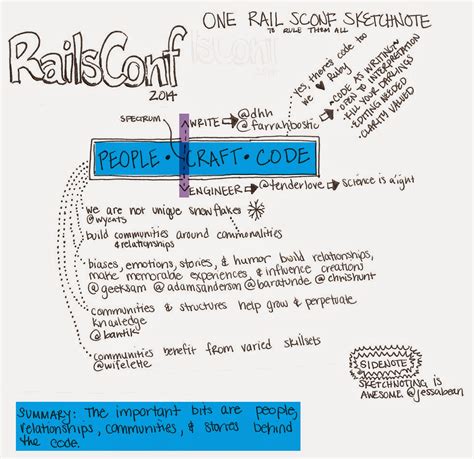 RailsConf
2014
ONE RAILSCONF SKETCHNOTE
TO RULE THEM ALL
yes, there's code too
we ♥ Ruby
~CODE AS WRITING~
~OPEN TO INTERPRETATION
~KILL YOUR DARLINGS
~EDITING NEEDED
~CLARITY VALUED
SPECTRUM
WRITE
@dhh
@farrahbostic
PEOPLE · CRAFT · CODE
ENGINEER
@tenderlove
science is a'ight
we are not unique snowflakes
@wycats
build communities around commonalities
& relationships
biases, emotions, stories, & humor build relationships,
make memorable experiences, & influence creations
@geeksam @adamsanderson @baratunde @chrishunt
communities & structures help grow & perpetuate
knowledge
@kantik
communities benefit from varied skillsets
@wifelette
SIDENOTE
SKETCHNOTING IS
AWESOME. @jessabean
SUMMARY: The important bits are people,
relationships, communities, & stories behind
the code.